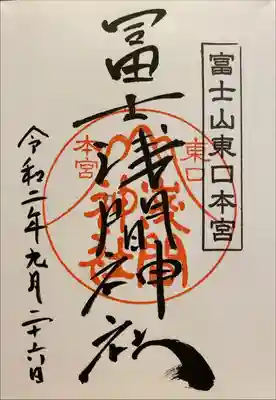 富士山東口本宮
冨士浅間神社
東口
本宮
令和二年九月二十六日